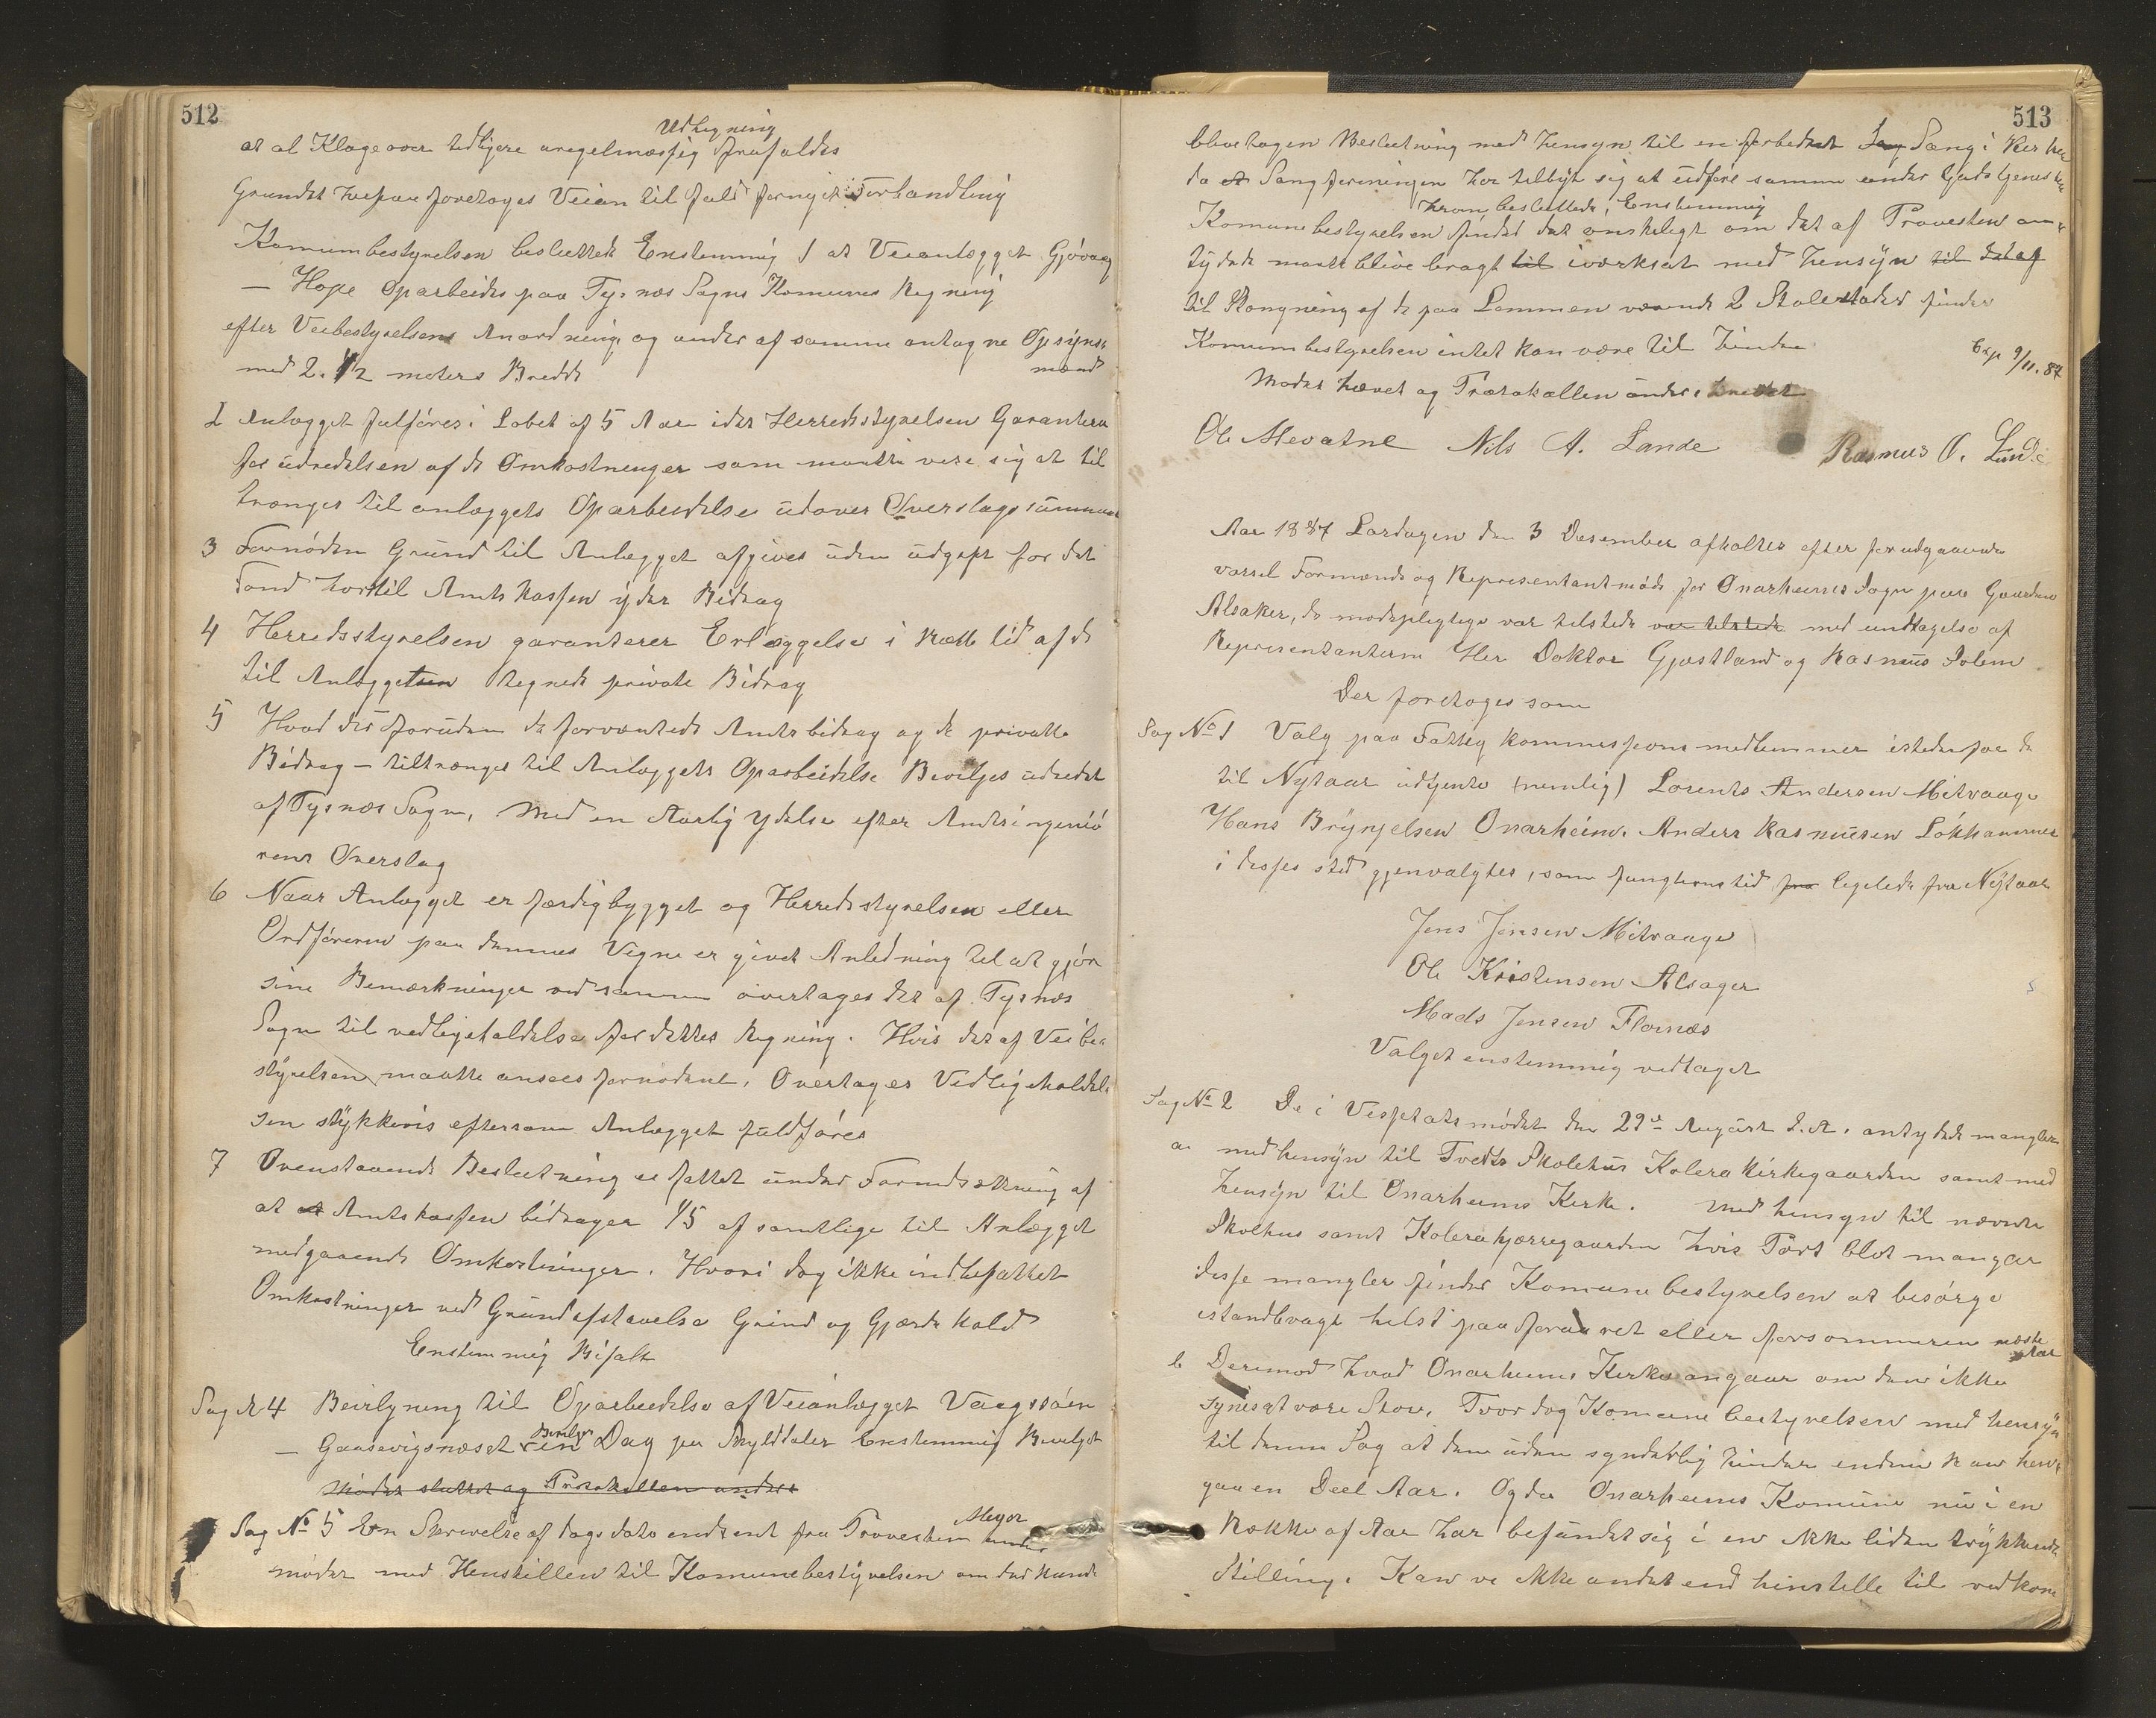 512
Udligning
at al Klage over tidligere uregelmæssig frafaldes
Grundet herpaa foretoges Veien til fuld fornyet Forhandling
Komunbestyrelsen besluttede Enstemmig 1 at Veianlægget Gjövaag
— Hope Oparbeides paa Tysnæs Sogns Komunes Regning
efter Veibestyrelsens Anordning og under af samme antagne Opsyns-
mænd
med 2. 1/2 meters Bredde
2 Anlægget fulföres i Löbet af 5 Aar idet Herredsstyrelsen Garanterer
for udredelsen af de Omkostninger som maatte vise sig at til
trænges til anlæggets Oparbeidelse udover Overslagssummen
3 Fornöden Grund til Anlægget afgives uden udgift for det
Fond hvortil Amtskassen yder Bidrag
4 Herredsstyrelsen garanterer Erlæggelse i rætte tid af de
til Anlægget tegnede private Bidrag
5 Hvad der foruden de forventede Amtsbidrag og de private
Bidrag — tiltrænges til Anlæggets Oparbeidelse Bevilges udredet
af Tysnæs Sogn, med en Aarlig ydelse efter Amtsingeniö
rens Overslag
6 Naar Anlægget er færdigbygget og Herredsstyrelsen eller
Ordföreren paa dennes Vegne er givet Anledning til at gjöre
sine Bemærkninger ved samme overtages det af Tysnæs
Sogn til vedligeholdelse for dettes Regning. Hvis det af Veibe-
styrelsen maatte ansees fornödent, Overtages Vedligeholdel
sen stykkevis eftersom Anlægget fuldföres
7 Ovenstaaende Beslutning er fattet under Forudsætning af
at Amtskassen bidrager 1/5 af samtlige til Anlægget
medgaaende Omkostninger. Hvori dog ikke indbefattet
Omkostninger ved Grundafstaaelse Grind og Gjærde hold
Enstemmig Bifalt
Sag № 4 Bevilgning til Oparbeidelse af Veianlægget Vaagssöen
Bevilges
— Gaasevigsnæset en Dag per Skylddaler Enstemmig Bevilget
Mödet sluttet og Protokollen undert
Meyer
Sag № 5 En Skrivelse af dags dato indsent fra Provesten under
mödet med Henstillen til Komunebestyrelsen om der kunde
513
blive tagen Beslutning med hensyn til en forbedret Sang i Kirken
da Sangforeningen har tilbyt sig at udföre samme under Gudstjenesten
hvor, besluttede, Enstemmig
Komunebestyrelsen finder det önskeligt om det af Provesten an-
tydede maatte blive bragt til iværksat med hensyn til det af
til Rangning af de paa Lemmen værende 2 Stolestader finder
Komunbestyrelsen intet kan være til hinder
Exp 9/11.87
Mödet hævet og Protokollen underskrevet
Ole Mevatne Nils A. Lande Rasmus O. Lunde
Aar 1887 Lördagen den 3 Desember afholtes efter forudgaaende
varsel Formands og Representantmöde for Onarheims Sogn paa Gaarden
Alsaker, de mödepligtige var tilstede var tilstede med undtagelse af
Representanterne Her Doktor Gjæstland og Rasmus Solem
Der foretoges som
Sag № 1 Valg paa Fattig kommissions medlemmer istedenfor de
til Nytaar udtjente (nemlig) Lorents Andersen Mitvaage
Hans Brynjelsen Onarheim. Anders Rasmusen Lökhammer
i disses sted gjenvalgtes, som funktionstid fra ligeledes fra Nytaar
Jens Jensen Mitvaage
Ole Kristensen Alsager
Mads Jensen Flornæs
Valget enstemmig vedtaget
Sag № 2 De i Visitatsmödet den 29de August d.A. antydede mangler
a med hensyn til Tvedts Skolehus Kolera kirkegaarden samt med
hensyn til Onarheims Kirke. Med hensyn til nævnte
Skolhus samt Kolerakjærregaarden hvis Port blot mangar
disse mangler finder Komunebestyrelsen at besörge
istandbragt helst paa foraaret eller forsommeren næste
Aar
b Derimod hvad Onarheims Kirke angaar om den ikke
synes at være Stor, Tror dog Komunebestyrelsen med hensyn
til denne Sag at den uden synderlig hinder endnu kan hen-
gaa en Deel Aar. Og da Onarheims Komune nu i en
Række af Aar har befundet sig i en ikke liden trykkende
Stilling. Kan vi ikke andet end hinstille til vedkom